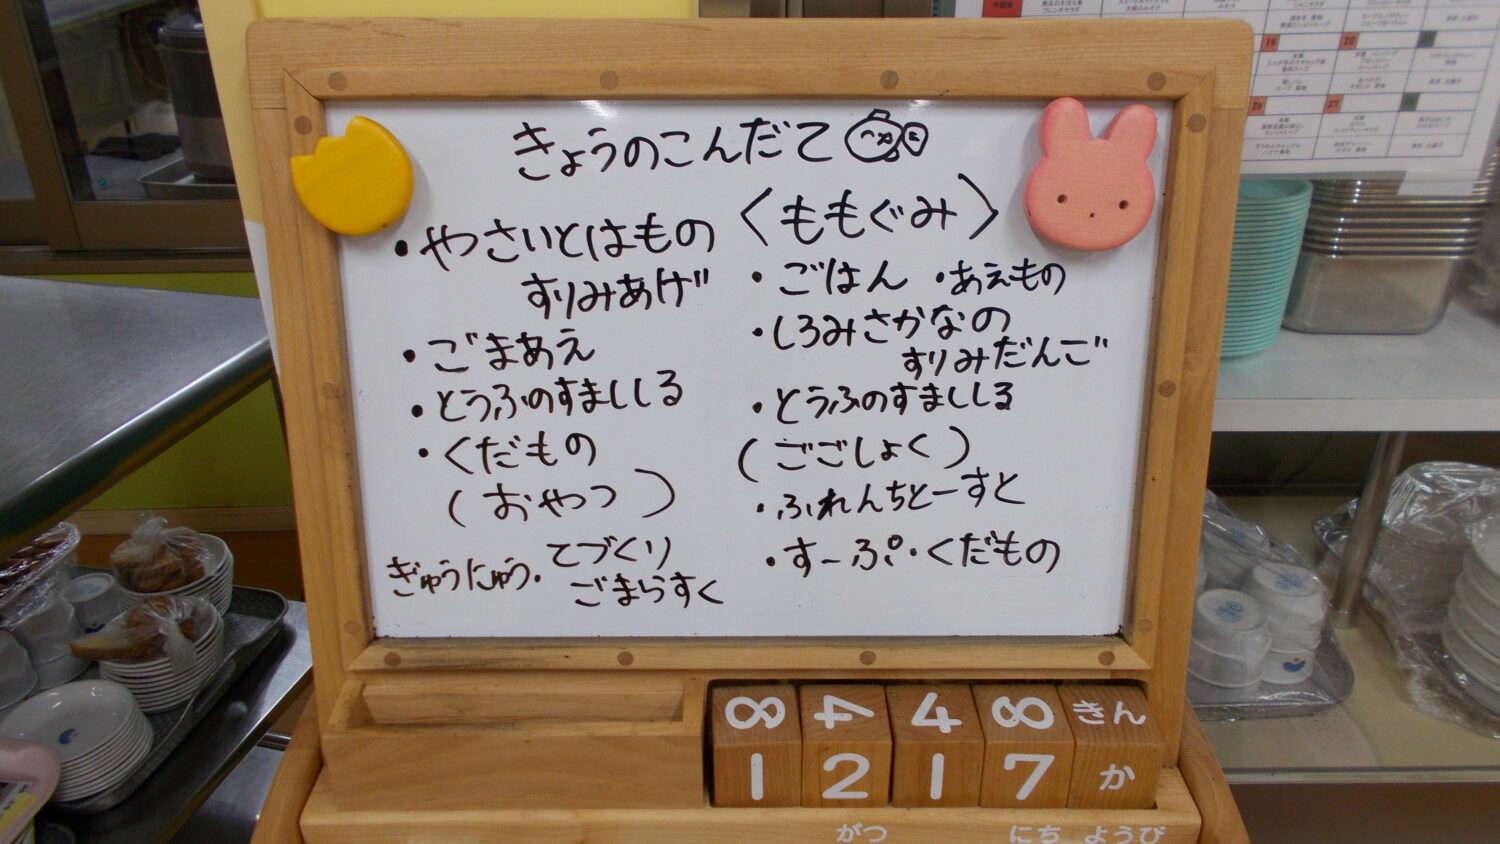 きょうのこんだて
・やさいとはもの
すりみあげ
・ごまあえ
・とうふのすましじる
・くだもの
(おやつ)
ぎゅうにゅう・てづくり
ごまらすく
〈ももぐみ〉
・ごはん ・あえもの
・しろみさかなの
すりみだんご
・とうふのすましじる
(ごごしょく)
・ふれんちとーすと
・すーぷ・くだもの
8 4 4 8 きん
1 2 1 7 か
がつ にち ようび
19
20
26
27